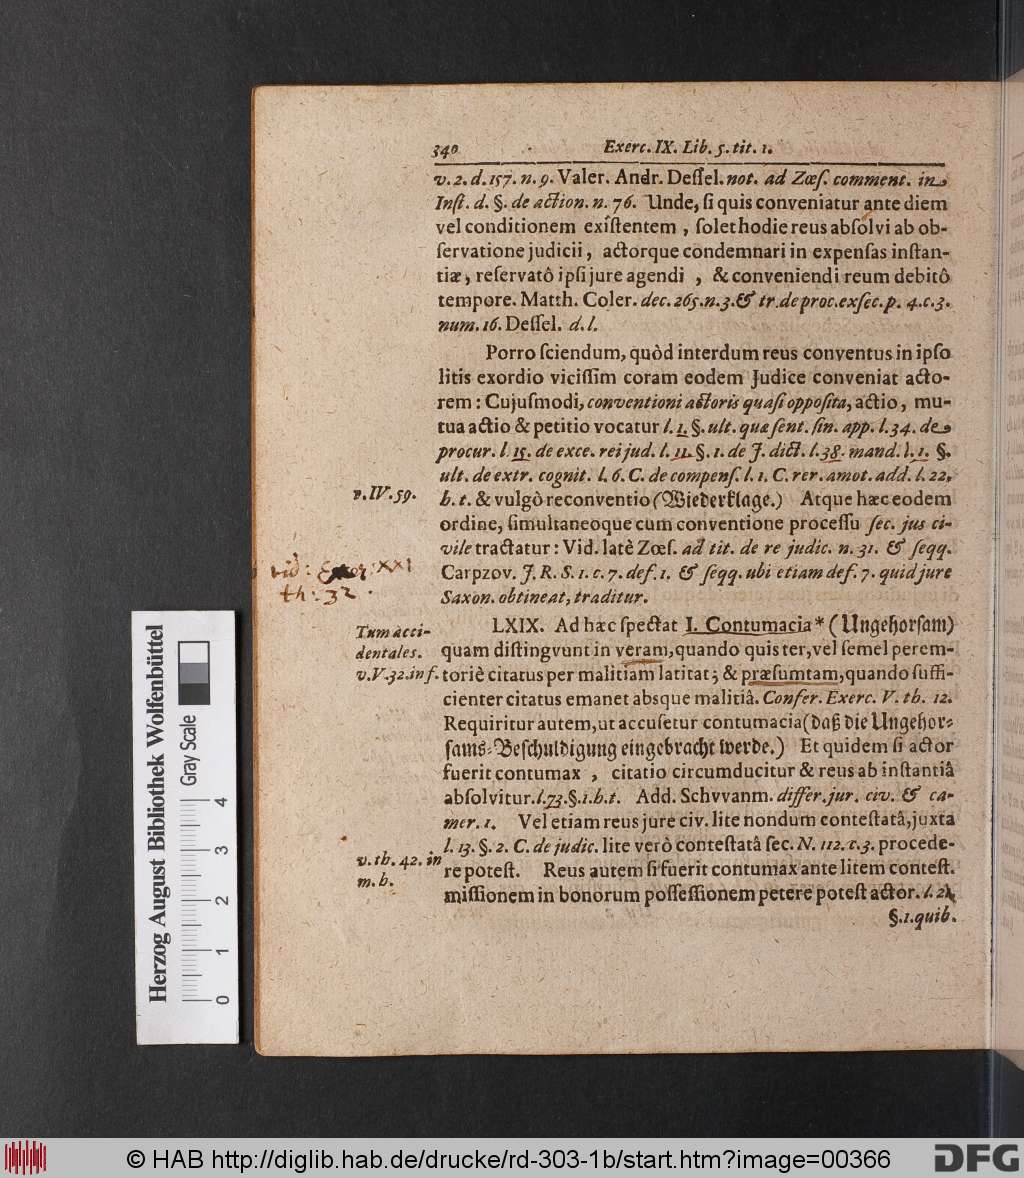 340 Exerc. IX. Lib. 5. tit. 1.
v. 2. d. 157. n. 9. Valer. Andr. Deſſel. not. ad Zœſ. comment. in
Inſt. d. §. de action. n. 76. Unde, ſi quis conveniatur ante diem
vel conditionem exiſtentem, ſolet hodie reus abſolvi ab ob-
ſervatione judicii, actorque condemnari in expenſas inſtan-
tiæ, reſervatô ipſi jure agendi, & conveniendi reum debitô
tempore. Matth. Coler. dec. 265. n. 3. & tr. de proc. exſec. p. 4. c. 3.
num. 16. Deſſel. d. l.
Porro ſciendum, quòd interdum reus conventus in ipſo
litis exordio viciſſim coram eodem Judice conveniat acto-
rem: Cujuſmodi, conventioni actoris quaſi oppoſita, actio, mu-
tua actio & petitio vocatur l. 1. §. ult. quæ ſent. ſin. app. l. 34. de
procur. l. 15. de exce. rei jud. l. 11. §. 1. de J. dict. l. 38. mand. l. 1. §.
ult. de extr. cognit. l. 6. C. de compenſ. l. 1. C. rer. amot. add. l. 22.
v. IV. 59.
h. t. & vulgò reconventio (Wiederklage.) Atque hæc eodem
ordine, ſimultaneoque cum conventione proceſſu ſec. jus ci-
vile tractatur: Vid. latè Zœſ. ad tit. de re judic. n. 31. & ſeqq.
Carpzov. J. R. S. 1. c. 7. def. 1. & ſeqq. ubi etiam def. 7. quid jure
Saxon. obtineat, traditur.
vid: Exer: XXI
th: 32.
Tum acci-
dentales.
v. V. 32. inf.
LXIX. Ad hæc ſpectat I. Contumacia * (Ungehorſam)
quam diſtingvunt in veram, quando quis ter, vel ſemel perem-
toriè citatus per malitiam latitat; & præſumtam, quando ſuffi-
cienter citatus emanet absque malitiâ. Confer. Exerc. V. th. 12.
Requiritur autem, ut accuſetur contumacia (daß die Ungehor-
ſams-Beſchuldigung eingebracht werde.) Et quidem ſi actor
fuerit contumax, citatio circumducitur & reus ab inſtantiâ
abſolvitur. l. 73. §. 1. h. t. Add. Schvvanm. differ. jur. civ. & ca-
mer. 1. Vel etiam reus jure civ. lite nondum conteſtatâ, juxta
l. 13. §. 2. C. de judic. lite verò conteſtatâ ſec. N. 112. c. 3. procede-
v. th. 42. in
m. h.
re poteſt. Reus autem ſi fuerit contumax ante litem conteſt.
miſſionem in bonorum poſſeſſionem petere poteſt actor. l. 2.
§. 1. quib.
Herzog August Bibliothek Wolfenbüttel
Gray Scale
0 1 2 3 4
© HAB http://diglib.hab.de/drucke/rd-303-1b/start.htm?image=00366
DFG